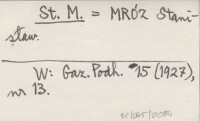 St. M. = MRÓZ Stani-
sław.
W: Gaz. Podh. 15 (1927),
nr 13.